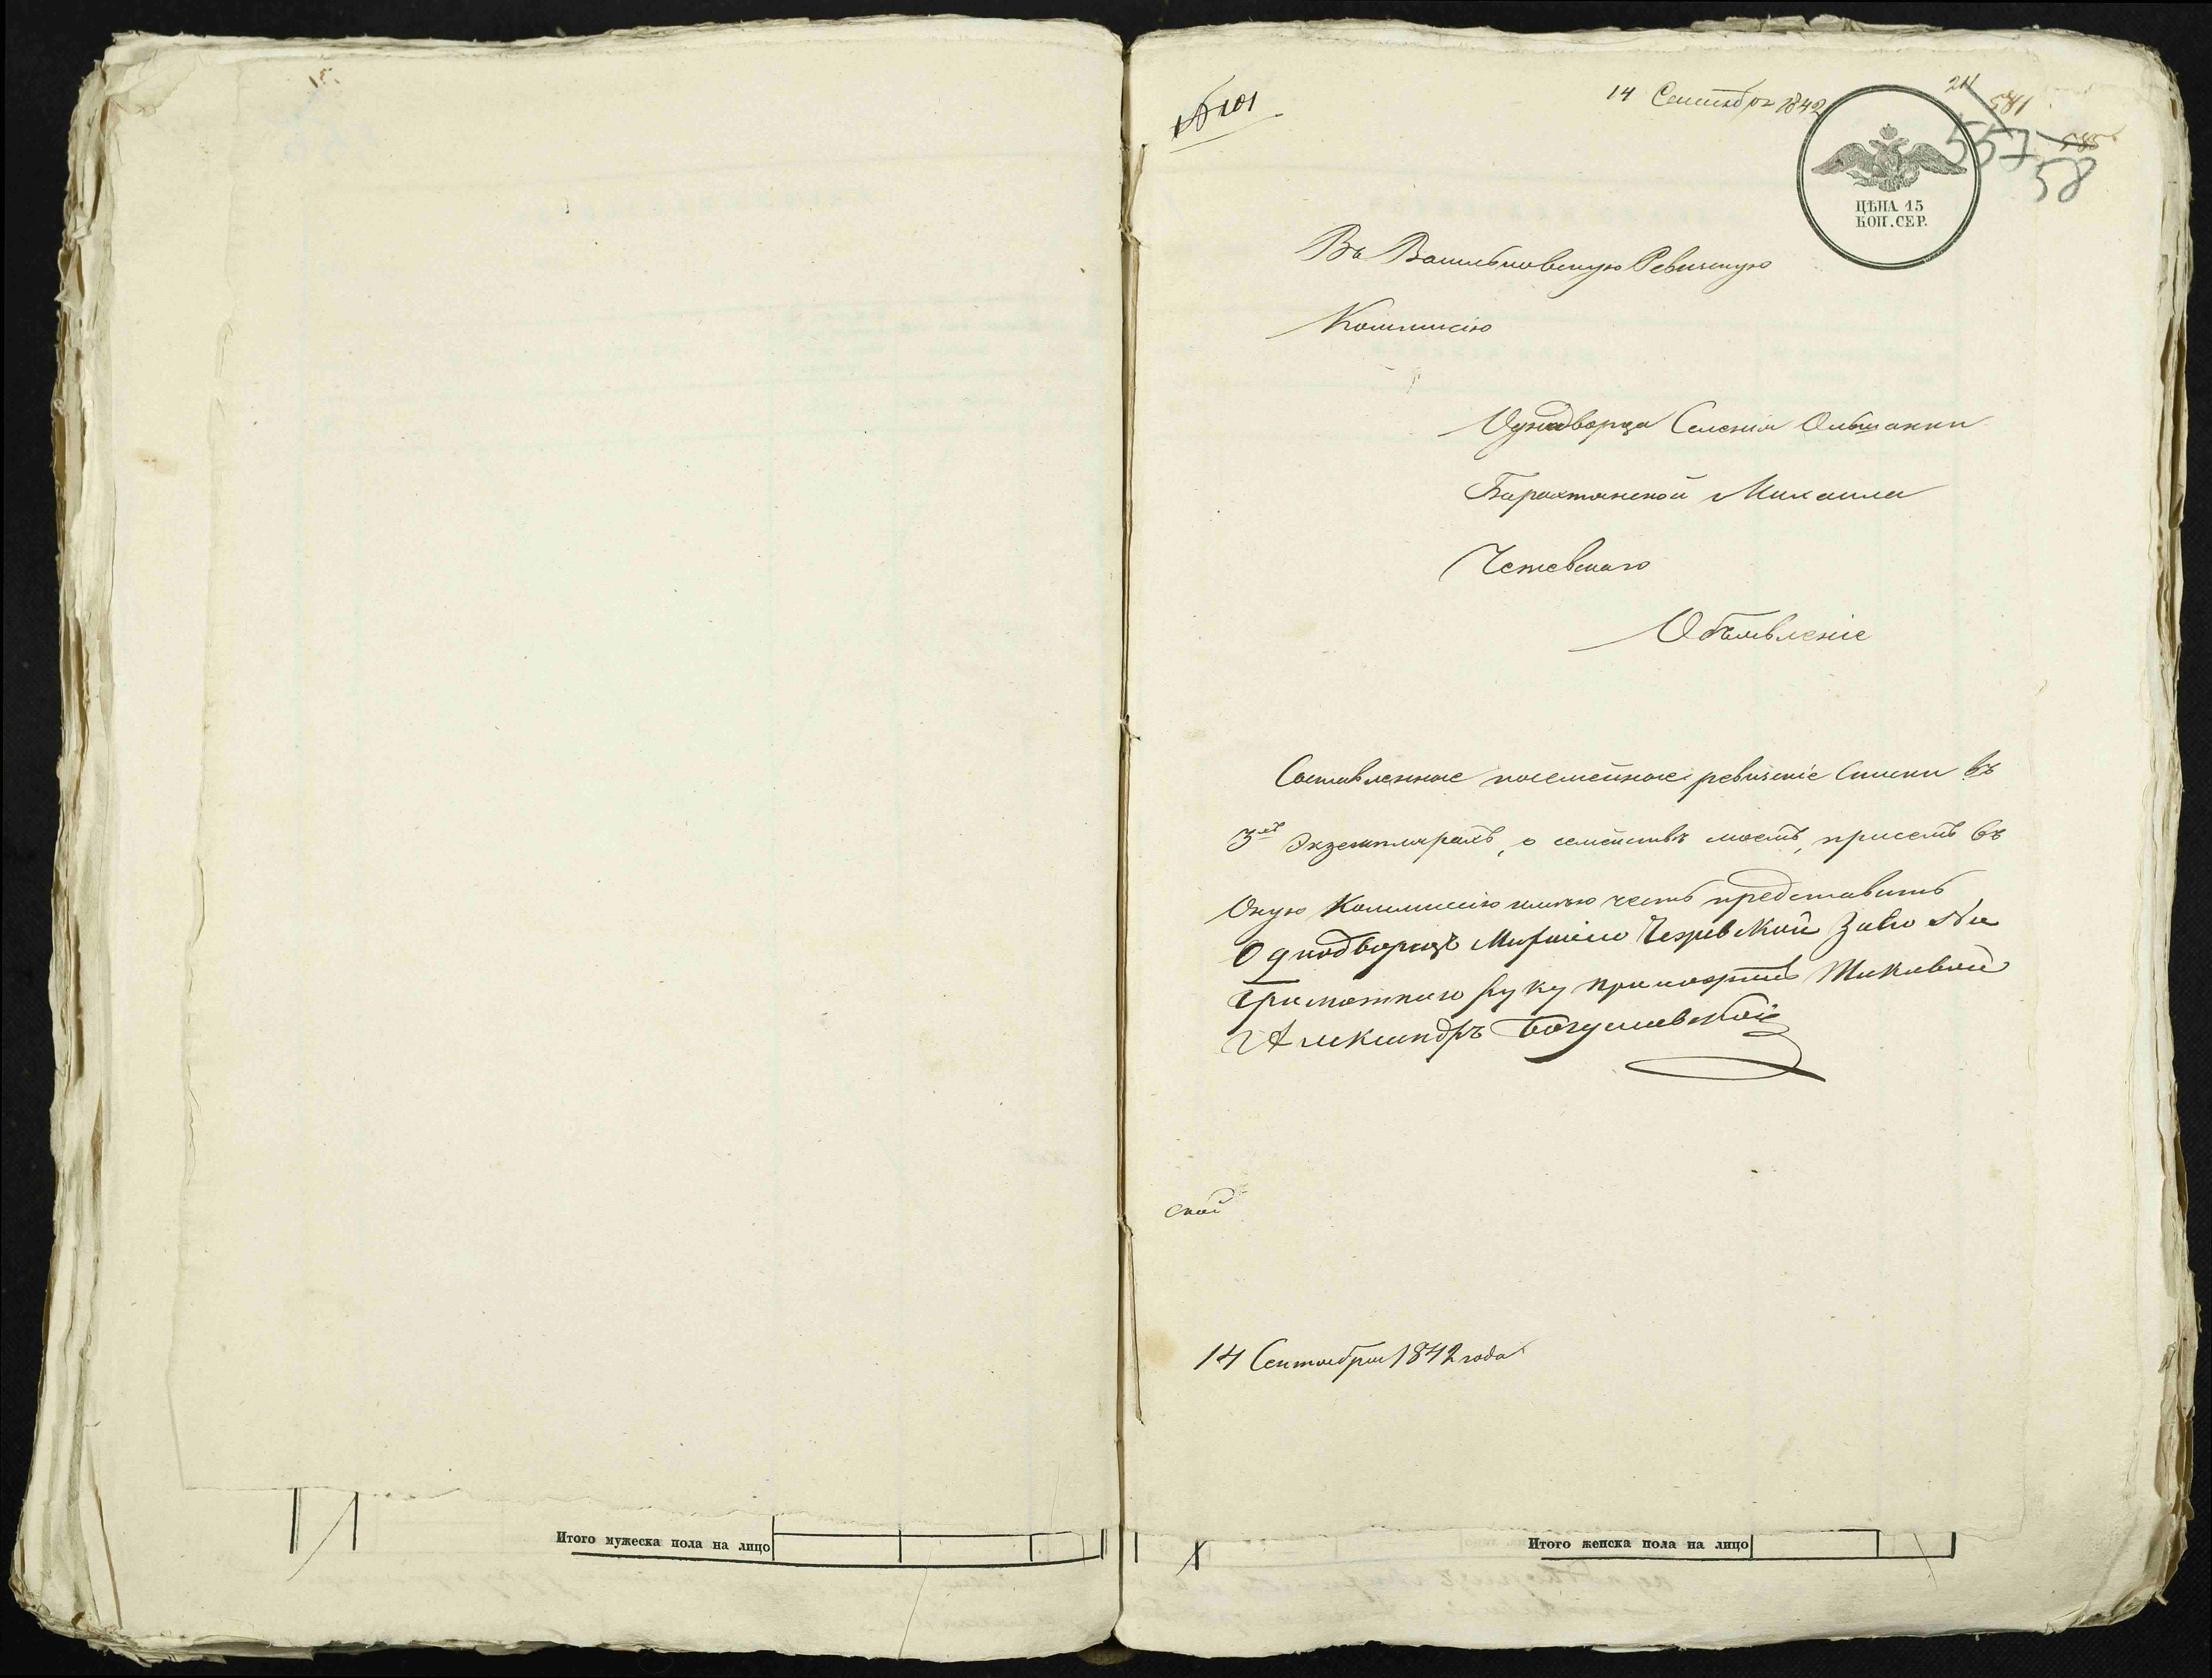 № 101
14 Сентября 1842
24
581
557
585
58
ЦѢНА 15
КОП. СЕР.
Въ Васильковскую Ревизскую
Коммисію
Однодворца Селенія Ольшанки
Барахтянской Михаила
Объявленіе
Составленные посемейные ревизскіе списки въ
3хъ Экземплярахъ, о семействѣ моемъ, присемъ въ
Оную Коммиссію имѣю честь представить
Однодворецъ Михаило За его Не
Грамотнаго руку приложилъ Таковой
Александръ Богушевской
ской
14 Сентября 1842 года
Итого мужеска пола на лицо
Итого женска пола на лицо